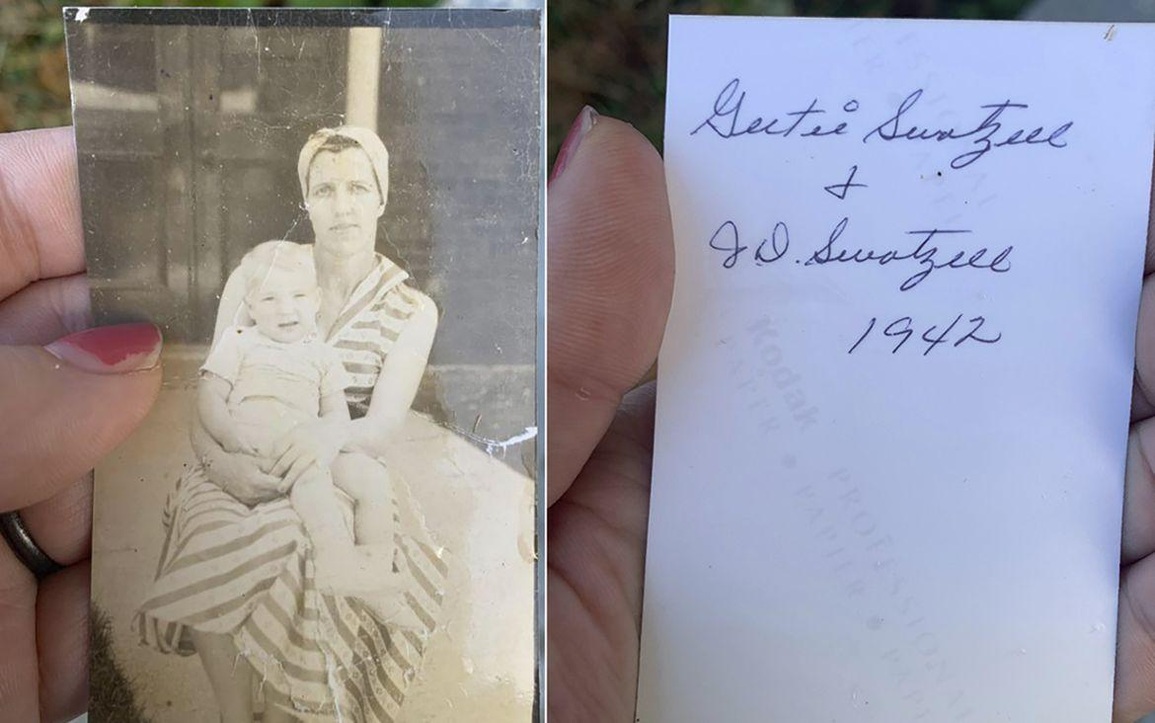 Gertie Swatzell
&
J.D. Swatzell
1942
Kodak
PROFESSIONAL
PAPIER